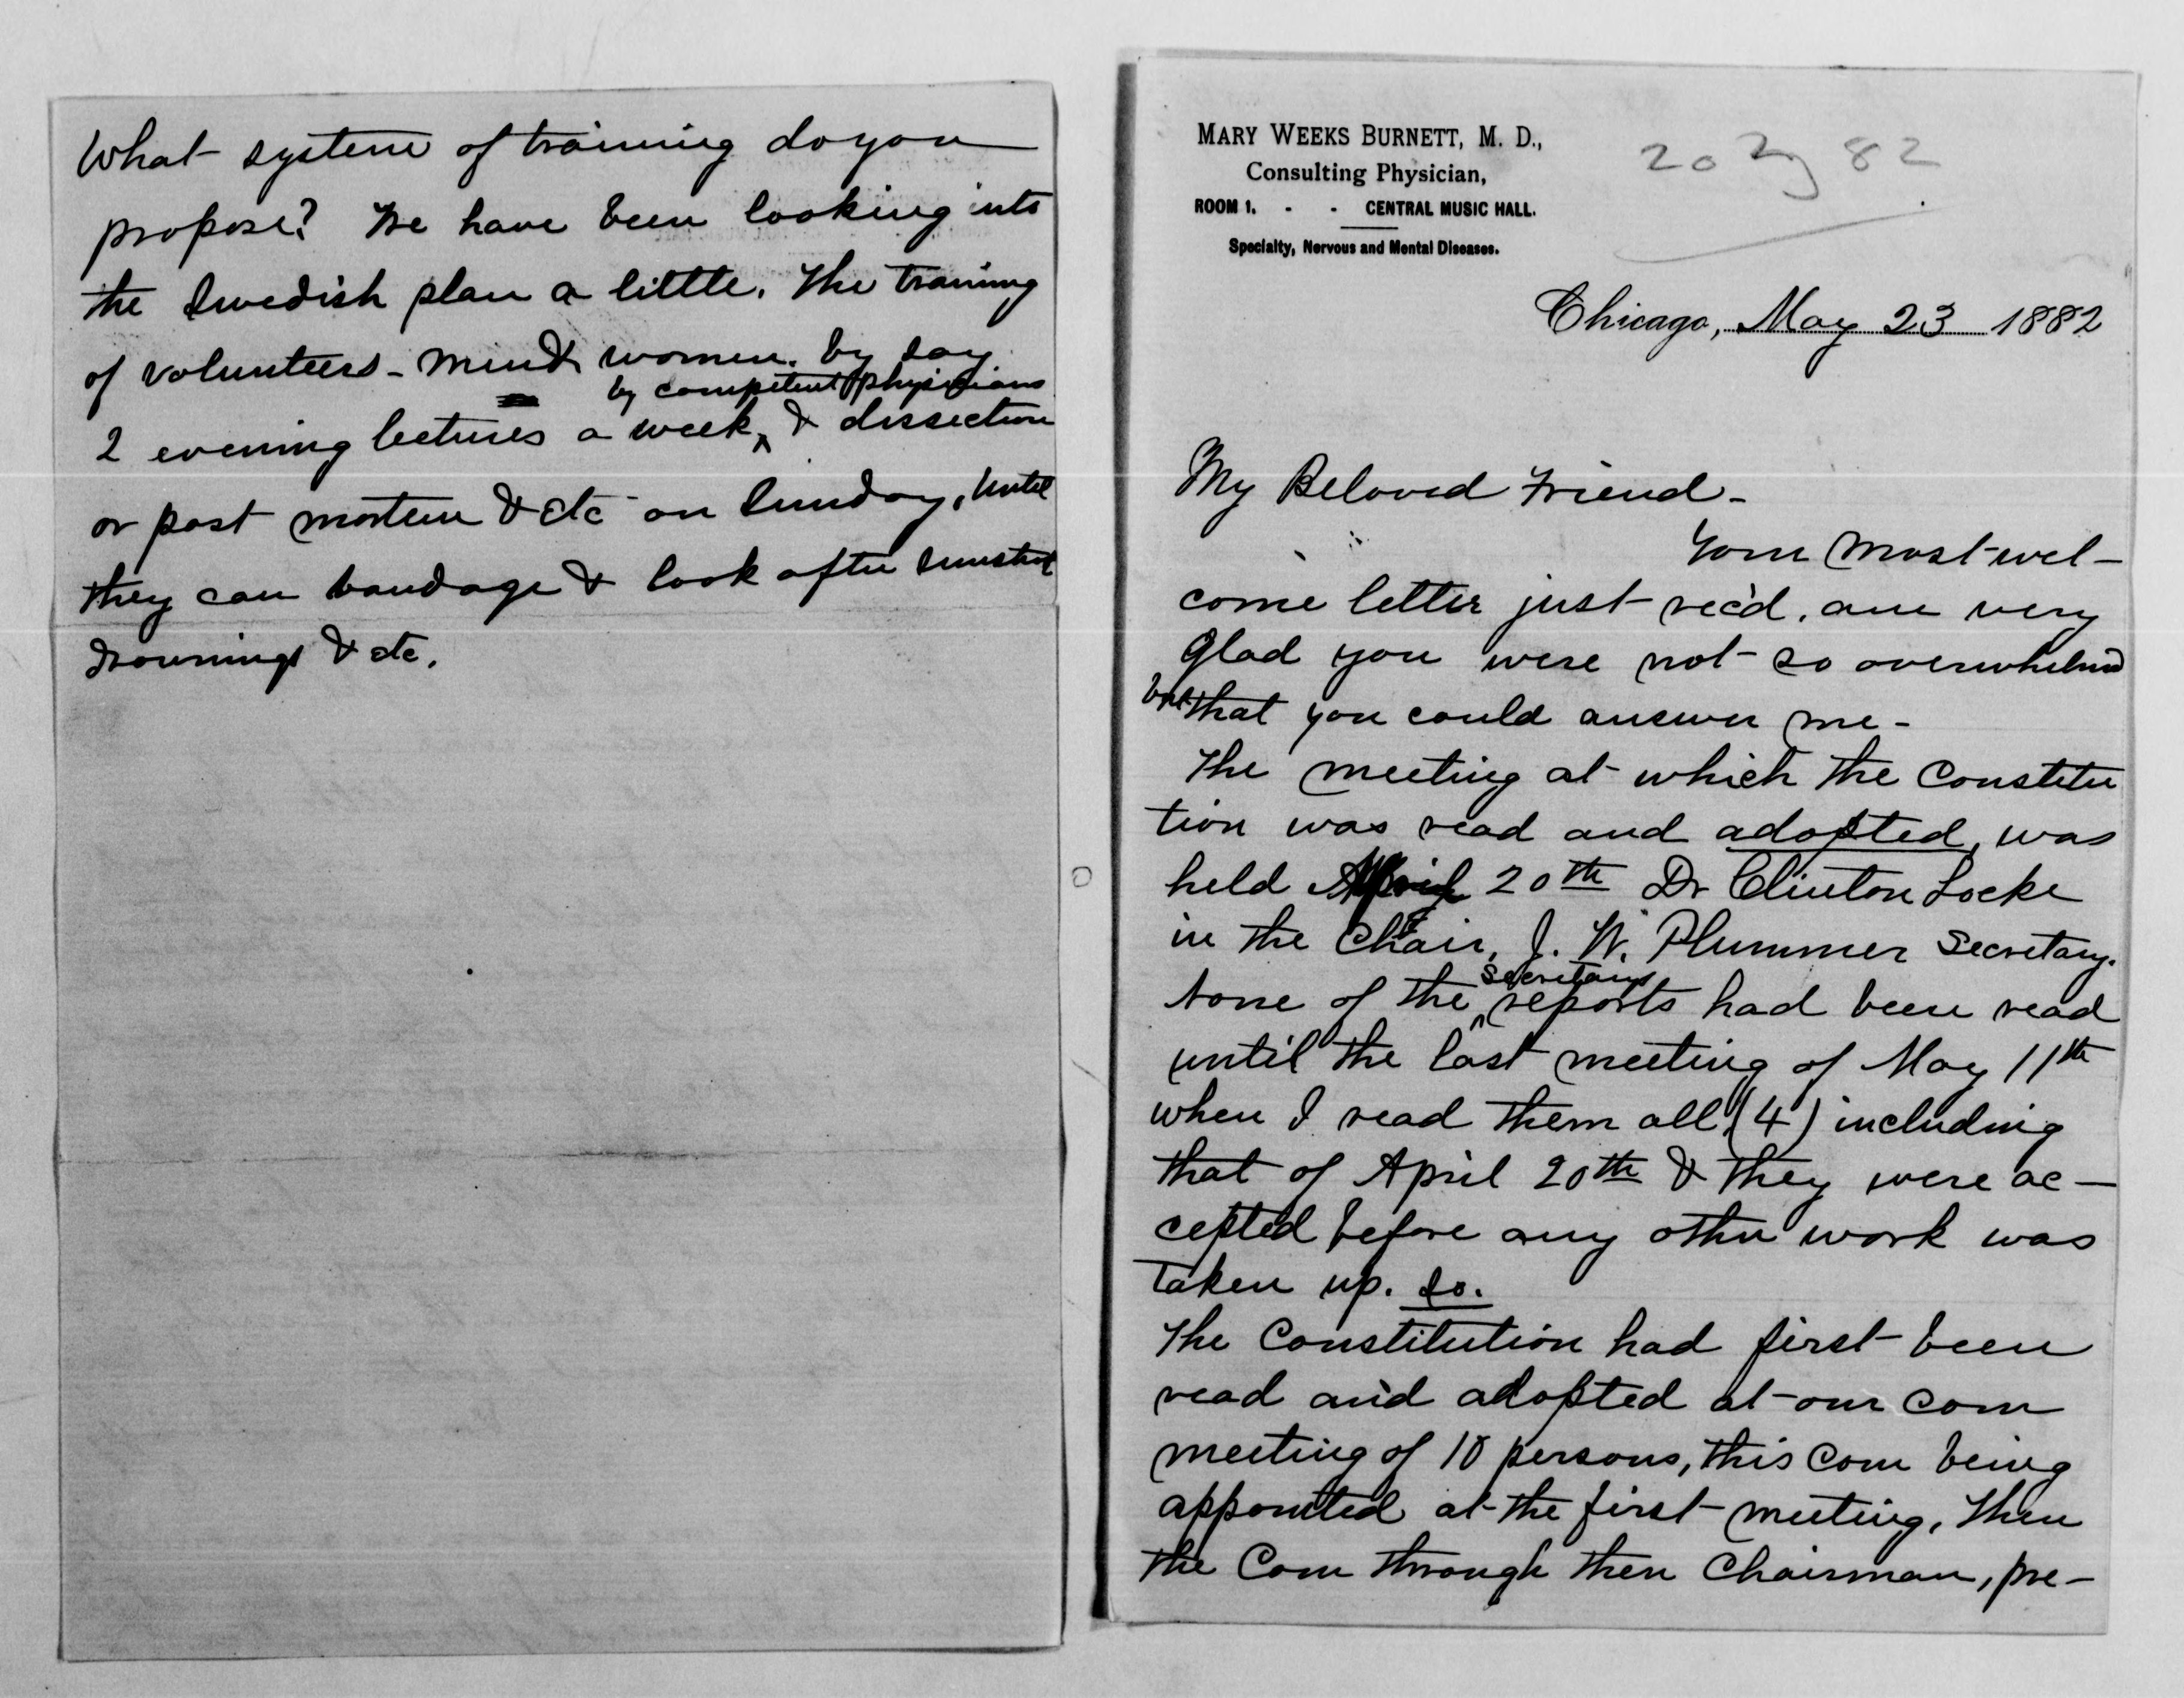 What system of training do you
propose? We have been looking into
the Swedish plan a little. The training
of volunteers - men & women. by say
by competent physicians
2 evening lectures a week, & dissection
or post mortem & etc on Sunday, until
they can bandage & look after sunstrok
drownings & etc.
MARY WEEKS BURNETT, M. D.,
Consulting Physician,
ROOM 1. - - CENTRAL MUSIC HALL.
Specialty, Nervous and Mental Diseases.
82
Chicago, May 23 1882
My Beloved Friend -
Your most wel-
come letter just rec'd. am very
glad you were not so overwhelmed
but that you could answer me -
The meeting at which the Constitu
tion was read and adopted, was
held April 20th Dr Clinton Locke
in the Chair, J. W. Plummer Secretary.
Secretarys
None of the ^ reports had been read
until the last meeting of May 11th
when I read them all (4) including
that of April 20th & they were ac-
cepted before any other work was
taken up. So.
The Constitution had first been
read and adopted at our com
meeting of 10 persons, this com being
appointed at the first meeting. Then
the Com through their Chairman, pre-